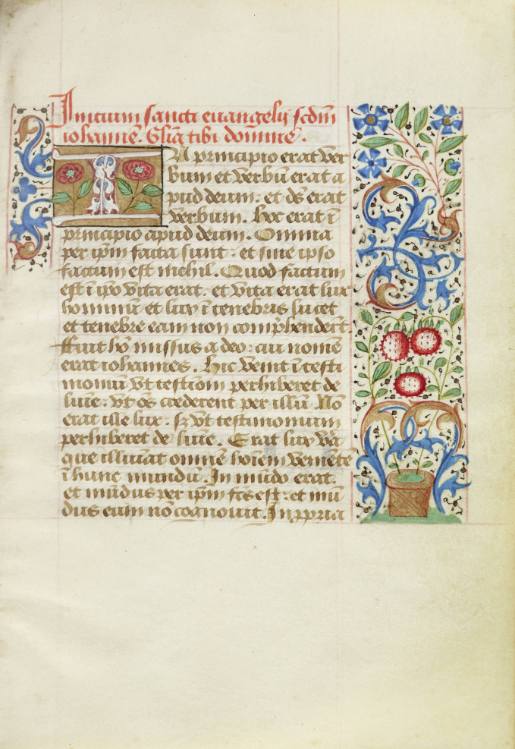 Inicium sancti euangelij scdm
iohanne. Glia tibi domine.
IN principio erat ver
bum et verbū erat a
pud deum. et ds erat
verbum. Hoc erat ī
principio apud deum. Omnia
per ipm facta sunt. et sine ipso
factum est nichil. Quod factum
est ī ipo vita erat. et vita erat lux
hominū et lux ī tenebris lucet
et tenebre eam non comprhenderūt
Fuit hō missus a deo: cui nomē
erat iohannes. Hic venit ī testi
moniū vt testīom perhiberet de
luīe: vt oēs crederent per illū. Nō
erat ille lux. s; vt testimonium
perhiberet de luīe. Erat lux vā
que illuīat omnē hoīem veniētē
ī hunc mundū. In mūdo erat.
et mūdus per ipm fcs est: et mū
dus eum nō cognouit. In ppria